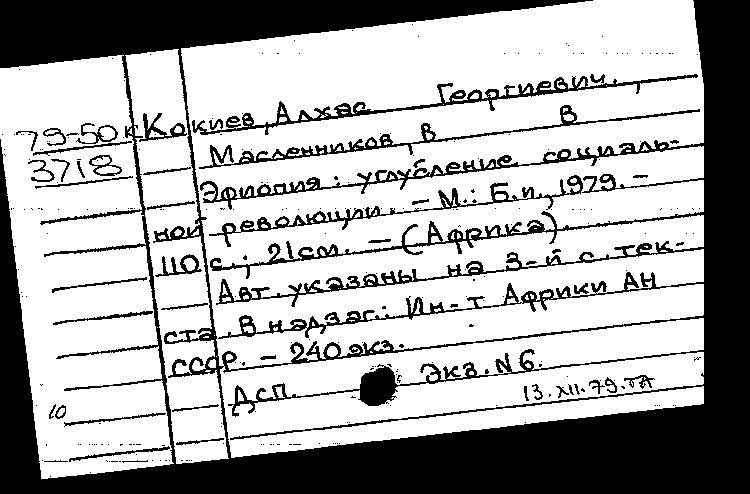 79-50к
3718
Кокиев, Алхас Георгиевич.,
Масленников, В В
Эфиопия: углубление социаль-
ной революции. - М.: Б.и., 1979. -
110 с.; 21см. - (Африка).
Авт. указаны на 3-й с. тек-
ста. В надзаг.: Ин-т Африки АН
СССР. - 240 экз.
Дсп. Экз. N 6.
10
13.XII.79.